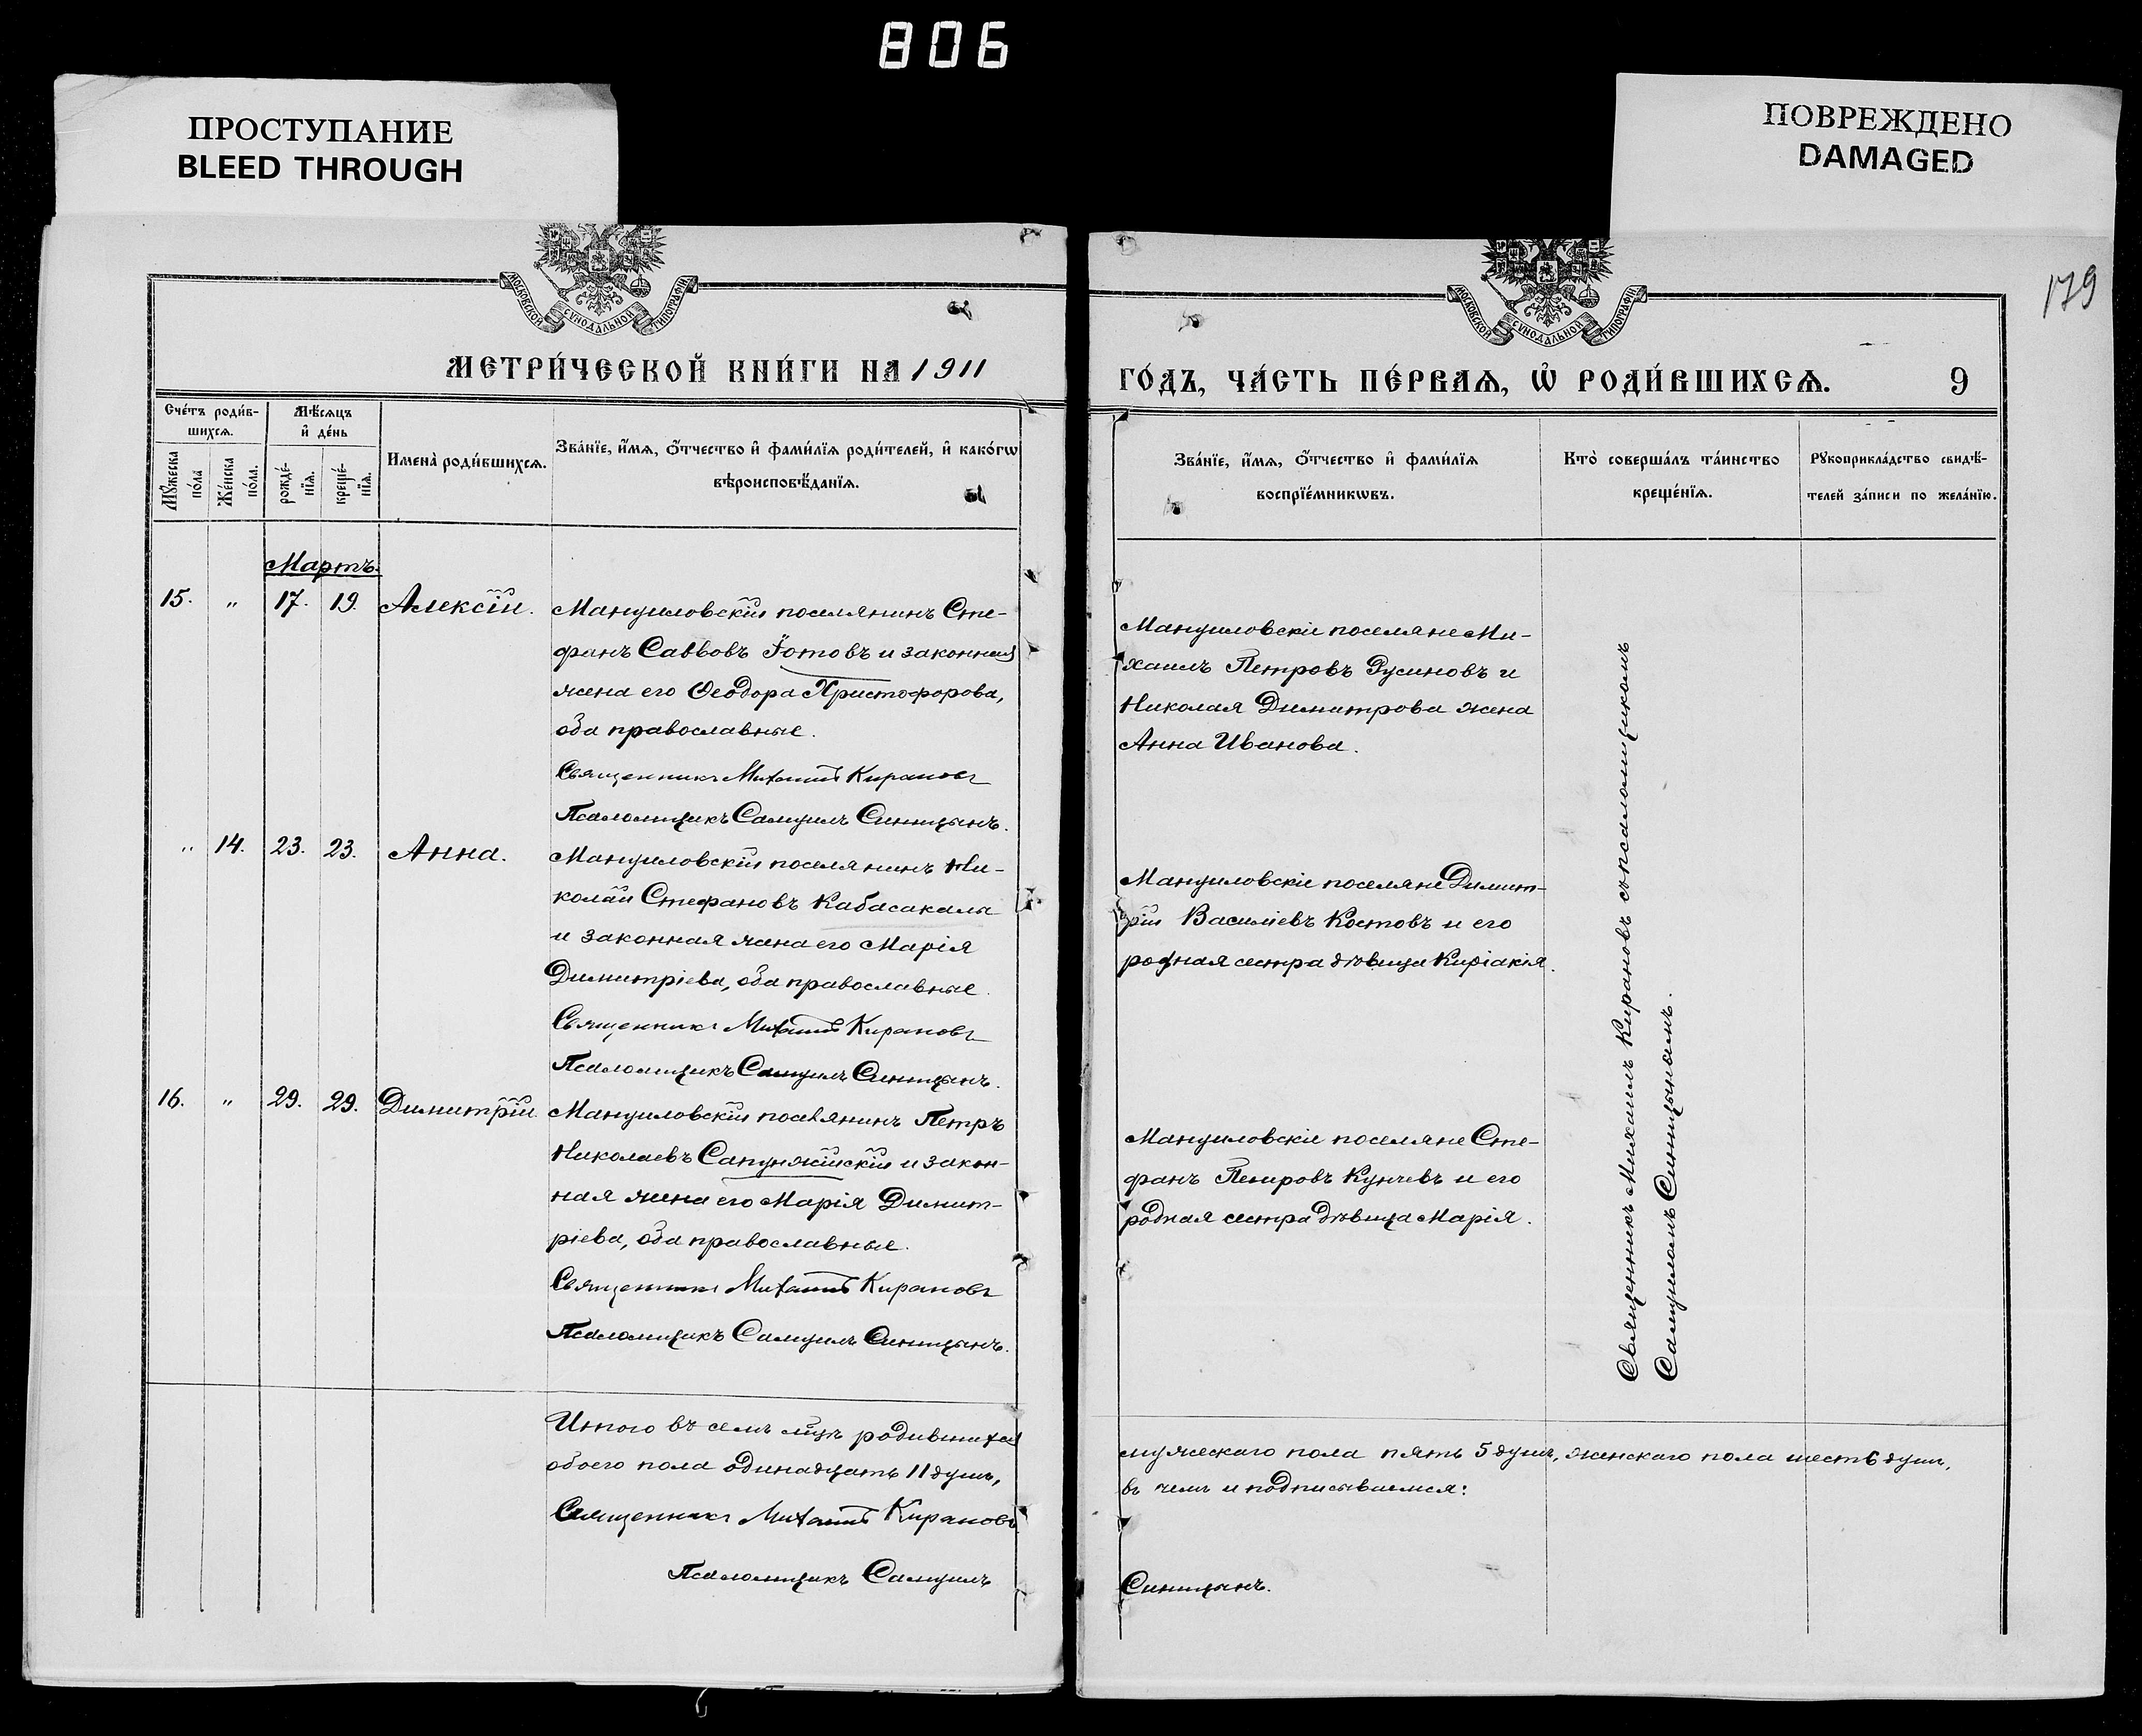 806
ПРОСТУПАНИЕ
BLEED THROUGH
ПОВРЕЖДЕНО
DAMAGED
179
МОСКОВСКОЙ СѴНОДАЛЬНОЙ ТИПОГРАФІИ
МОСКОВСКОЙ СѴНОДАЛЬНОЙ ТИПОГРАФІИ
МЕТРИ́ЧЕСКОЙ КНИ́ГИ НА 1911
ГО́ДЪ, ЧА́СТЬ ПЕ́РВАѦ, Ѽ РОДИ́ВШИХСѦ.
9
Сче́тъ роди́в-
шихсѧ.
Мѣ́сѧцъ
и҆ де́нь
Мꙋ́жеска
по́ла
Же́нска
по́ла.
рожде́-
нїѧ.
креще́-
нїѧ.
Имена̀ роди́вшихсѧ.
Зва́нїе, и҆́мѧ, ѻ҆́тчество и҆ фами́лїѧ роди́телей, и҆ како́гѡ
вѣроисповѣ́данїѧ.
Зва́нїе, и҆́мѧ, ѻ҆́тчество и҆ фами́лїѧ
воспрїе́мникѡвъ.
Кто̀ соверша́лъ та́инство
креще́нїѧ.
Рꙋкоприкла́дство свидѣ́-
телей за́писи по жела́нїю.
Мартъ.
15. " 17. 19. Алексій.
Мануиловскій поселянинъ Сте-
фанъ Саввовъ Іотовъ и законная
жена его Ѳеодора Христофорова,
оба православные.
Священникъ Михаилъ Кирановъ
Псаломщикъ Самуилъ Синицынъ.
Мануиловскіе поселяне Ми-
хаилъ Петровъ Русиновъ и
Николая Димитрова жена
Анна Иванова.
" 14. 23. 23. Анна.
Мануиловскій поселянинъ Ни-
колай Стефановъ Кабасакалы
и законная жена его Марія
Димитріева, оба православные.
Священникъ Михаилъ Кирановъ
Псаломщикъ Самуилъ Синицынъ.
Мануиловскіе поселяне Димит-
рій Василіевъ Костовъ и его
родная сестра дѣвица Киріакія.
16. " 29. 29. Димитрій
Мануиловскій поселянинъ Петръ
Николаевъ Сапунжійскій и закон-
ная жена его Марія Димит-
ріева, оба православные.
Священникъ Михаилъ Кирановъ
Псаломщикъ Самуилъ Синицынъ.
Мануиловскіе поселяне Сте-
фанъ Петровъ Кунчевъ и его
родная сестра дѣвица Марія.
Священникъ Михаилъ Кирановъ съ псаломщикомъ
Самуиломъ Синицынымъ.
Итого въ семъ мцѣ родившихся
обоего пола одинадцать 11 душъ,
мужескаго пола пять 5 душъ, женскаго пола шесть 6 душъ,
въ чемъ и подписываемся:
Священникъ Михаилъ Кирановъ
Псаломщикъ Самуилъ
Синицынъ.